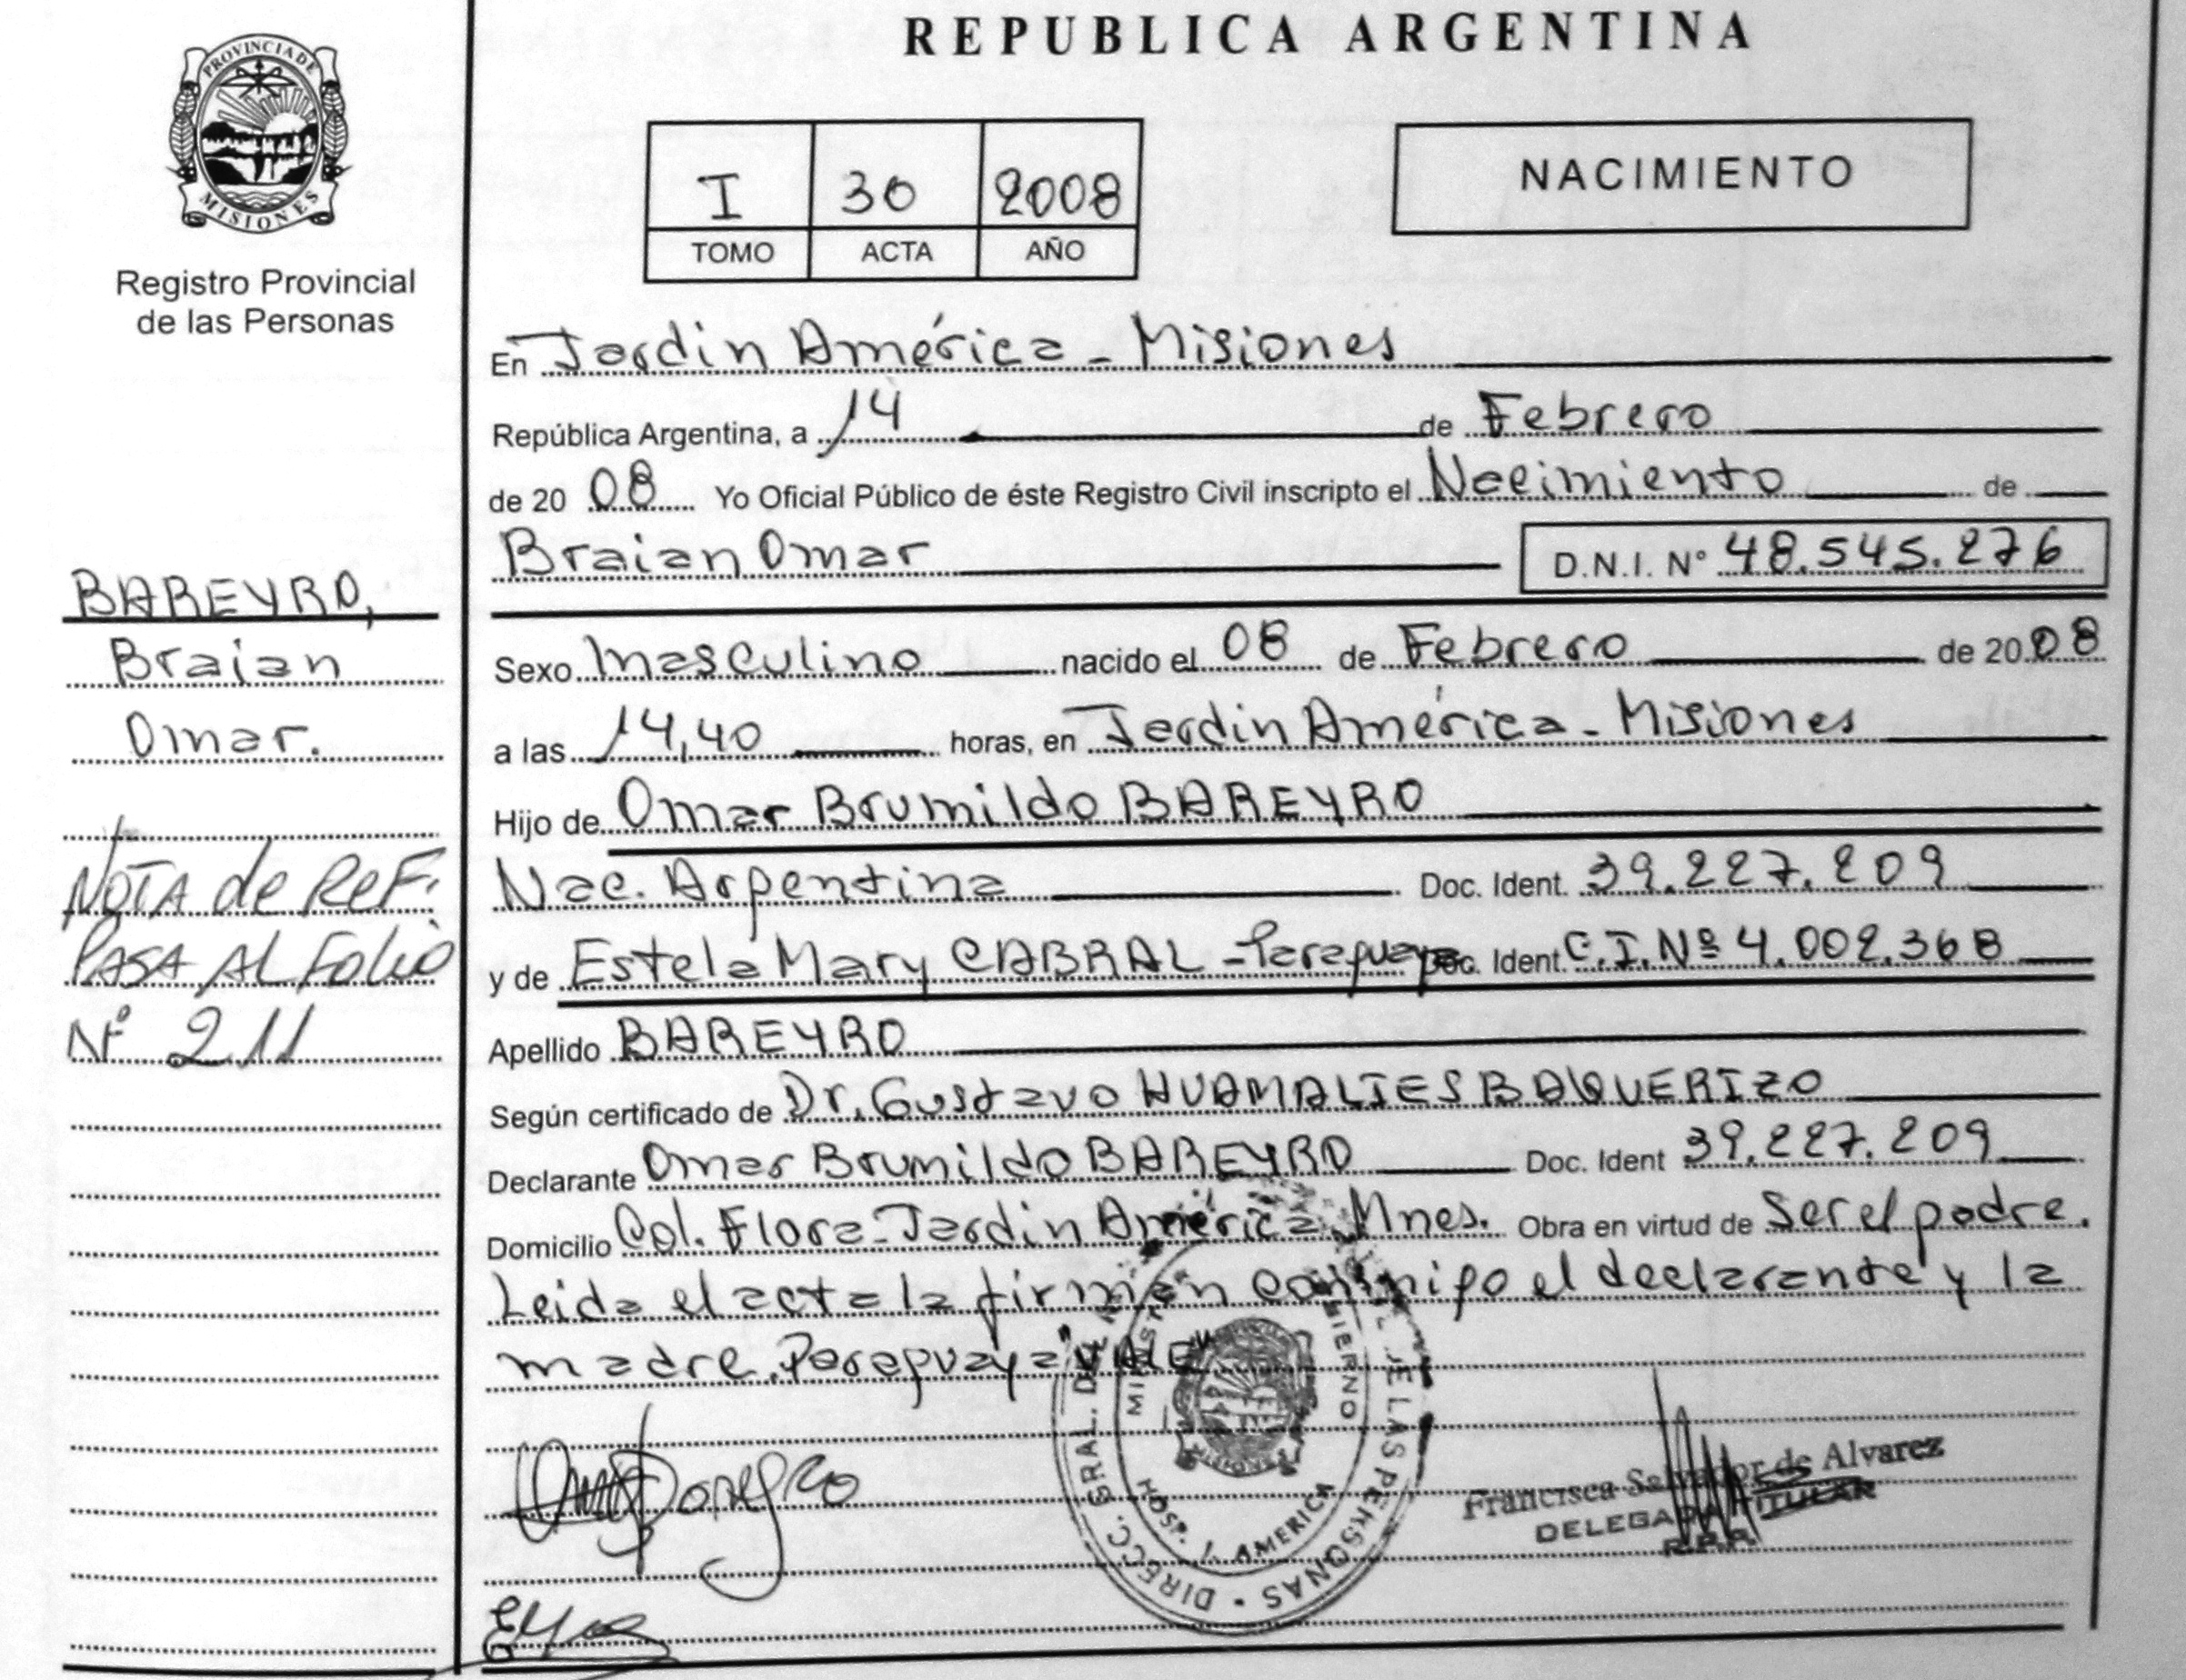 REPUBLICA ARGENTINA
PROVINCIA DE
MISIONES
Registro Provincial
de las Personas
I 30 2008
TOMO ACTA AÑO
NACIMIENTO
En Jardin América - Misiones
República Argentina, a 14 de Febrero
de 20 08 Yo Oficial Público de éste Registro Civil inscripto el Nacimiento de
Braian Omar D.N.I. N° 48.545.276
BAREYRO,
Braian
Omar.
NOTA de REF.
PASA AL Folio
N° 211
Sexo Masculino nacido el 08 de Febrero de 20 08
a las 14,40 horas, en Jardin América - Misiones
Hijo de Omar Brumildo BAREYRO
Nac. Argentina Doc. Ident. 39.227.209
y de Estela Mary CABRAL - Paraguaya Doc. Ident. C.I.Nº 4.002.368
Apellido BAREYRO
Según certificado de Dr. Gustavo HUAMALIES BAQUERIZO
Declarante Omar Brumildo BAREYRO Doc. Ident 39.227.209
Domicilio Col. Flora - Jardin América, Mnes. Obra en virtud de Ser el padre.
Leida el acta la firman conmigo el declarante y la
madre. Paraguaya "VALE"
DIRECC. GRAL. DE LAS PERSONAS
HOSP. J. AMERICA
Francisca Salvador de Alvarez
DELEGADA TITULAR
R.P.P.